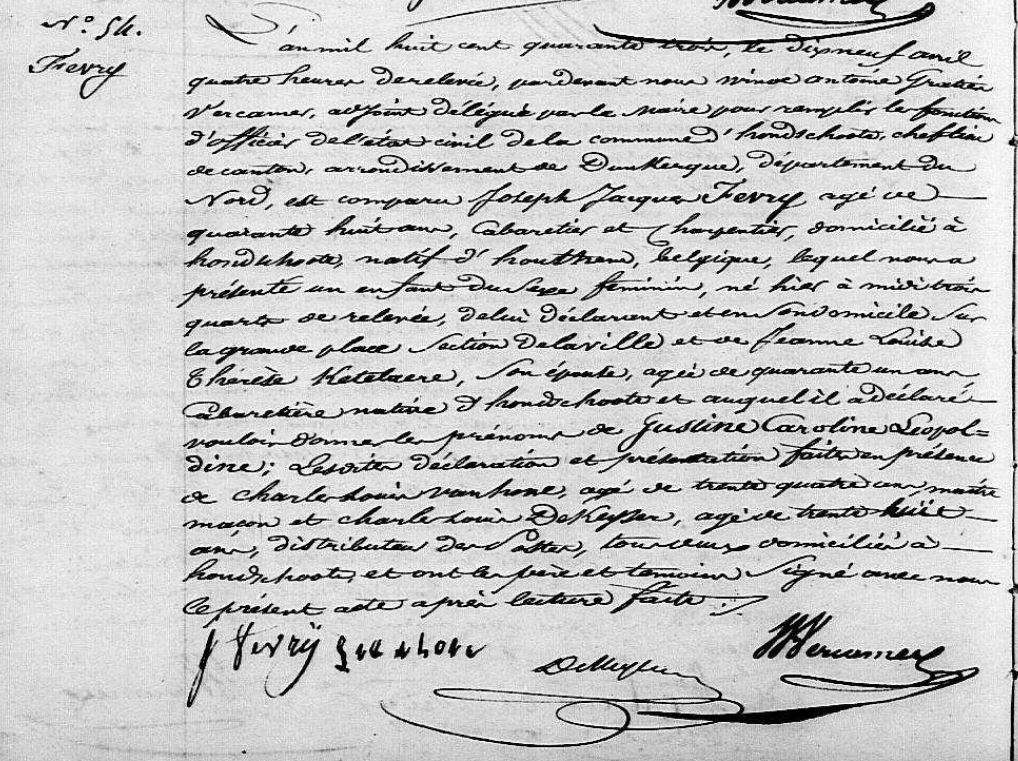 N.° 54.
Fevry
L'an mil huit cent quarante trois, le dix neuf avril
quatre heures de relevée, pardevant nous Winoc Antoine Gratien
Vercamer, adjoint délégué par le Maire pour remplir les fonctions
d'officier de l'état civil de la commune d'hondschoote, chef lieu
de canton, arrondissement de Dunkerque, département du
Nord, est comparu Joseph Jacques Fevry agé de
quarante huit ans, Cabaretier et Charpentier, domicilié à
hondschoote, natif d'houthem, Belgique, lequel nous a
présenté un enfant du Sexe féminin, né hier à midi trois
quarts de relevée, de lui déclarant et en Son domicile Sur
la grande place Section de la ville et de Jeanne Louise
Thérèse Ketelaere, Son épouse, agée de quarante un ans
Cabaretière native d'hondschoote et auquel il a déclaré
vouloir donner les prénoms de Justine Caroline Léopol=
dine; Lesdites déclaration et présentation faites en présence
de Charles Louis Vanhove, agé de trente quatre ans, maître
maçon et Charles Louis DeKeyser, agé de trente huit
ans, distributeur des Postes, tous deux domiciliés à
hondschoote, et ont les père et temoins Signé avec nous
le présent acte après lecture faite ./.
J Fevrÿ
DeKeyser
WVercamer